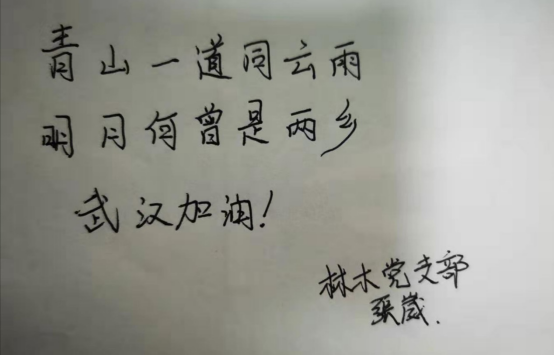 青山一道同云雨
明月何曾是两乡
武汉加油！
林木党支部
张崴.